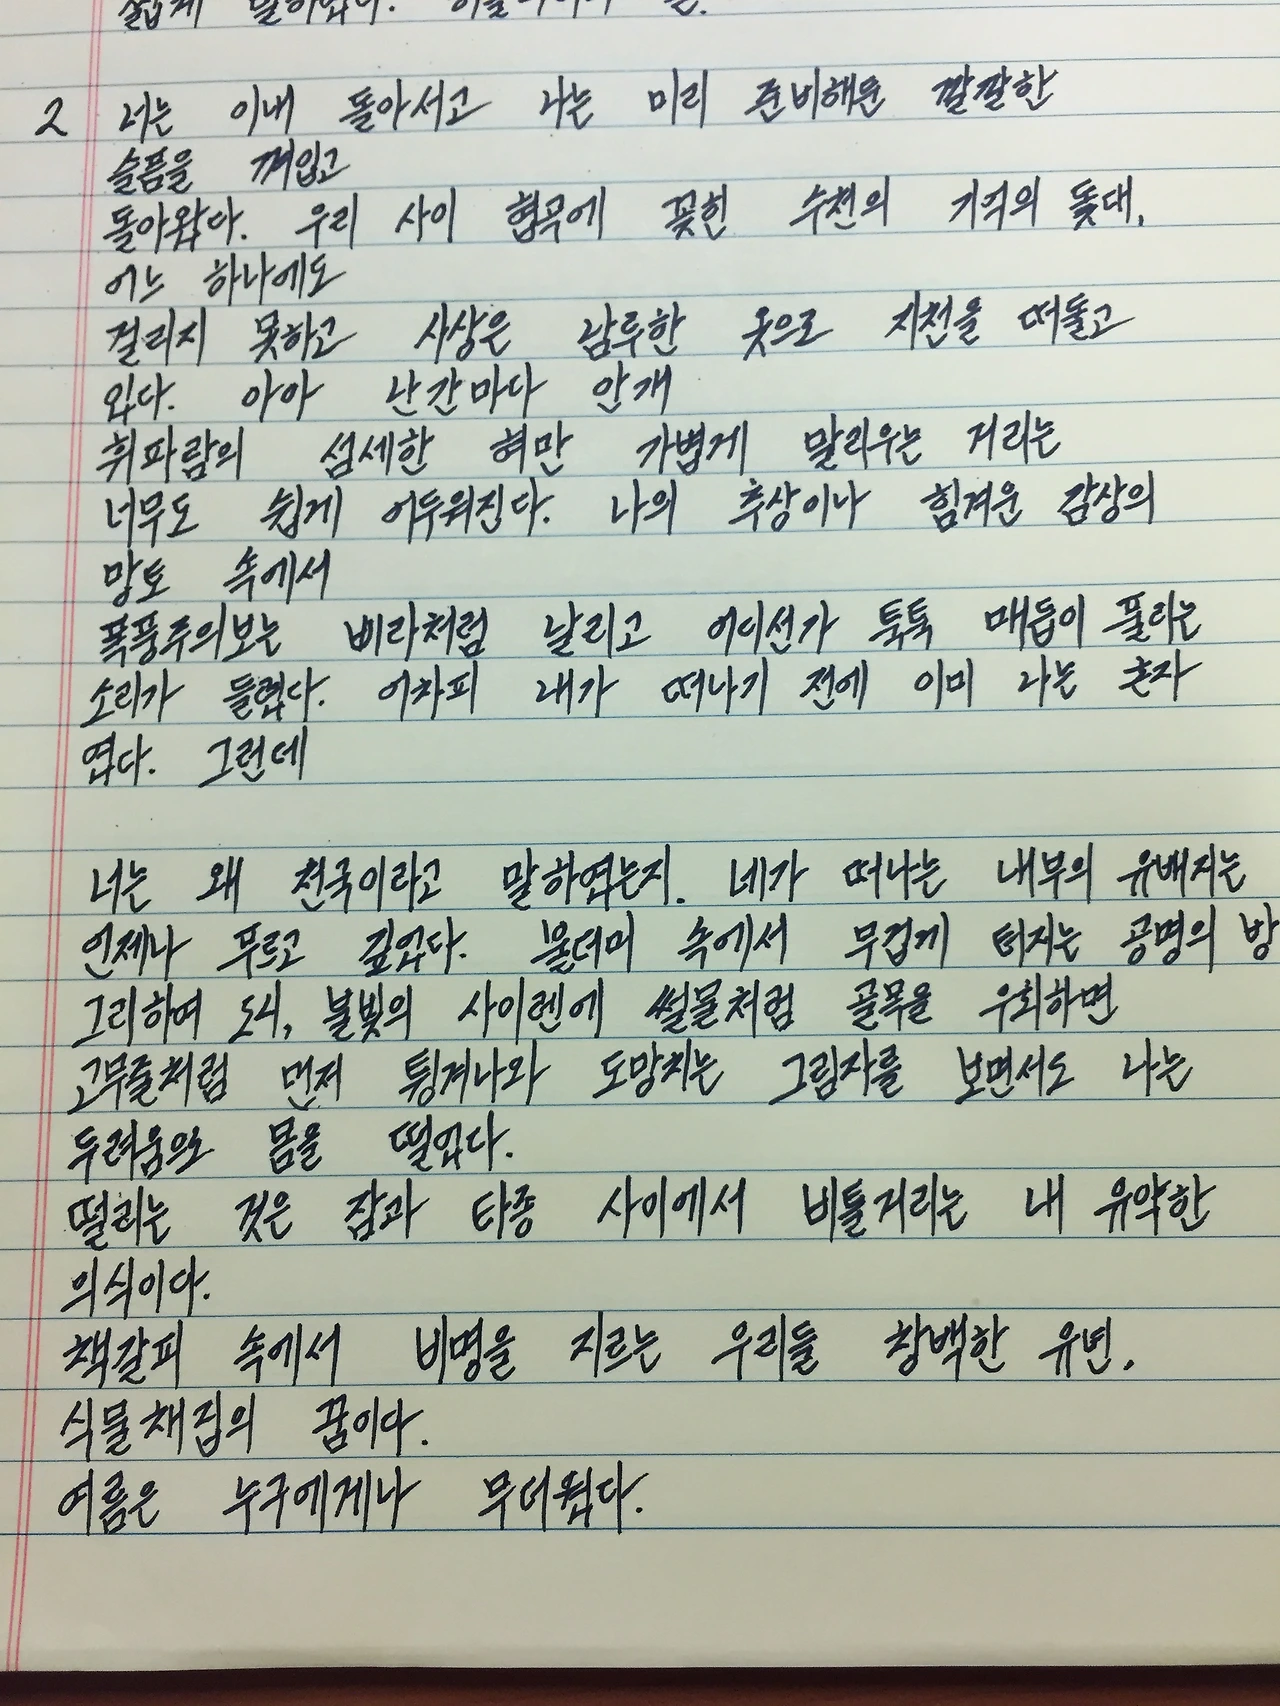 쉽게 말하였다.
2 너는 이내 돌아서고 나는 미리 준비해둔 깔깔한
슬픔을 껴입고
돌아왔다. 우리 사이 협곡에 꽂힌 수천의 기억의 돛대,
어느 하나에도
걸리지 못하고 사상은 남루한 옷으로 지천을 떠돌고
있다. 아아 난간마다 안개
휘파람의 섬세한 혀만 가볍게 말리우는 거리는
너무도 쉽게 어두워진다. 나의 추상이나 힘겨운 감상의
망토 속에서
폭풍주의보는 삐라처럼 날리고 어디선가 툭툭 매듭이 풀리는
소리가 들렸다. 어차피 내가 떠나기 전에 이미 나는 혼자
였다. 그런데
너는 왜 천국이라고 말하였는지. 네가 떠나는 내부의 유배지는
언제나 푸르고 깊었다. 불더미 속에서 무겁게 터지는 공명의 방
그리하여 도시, 불빛의 사이렌에 썰물처럼 골목을 우회하면
고무줄처럼 먼저 튕겨나와 도망치는 그림자를 보면서도 나는
두려움으로 몸을 떨었다.
떨리는 것은 잠과 타종 사이에서 비틀거리는 내 유약한
의식이다.
책갈피 속에서 비명을 지르는 우리들 창백한 유년,
식물채집의 꿈이다.
여름은 누구에게나 무더웠다.